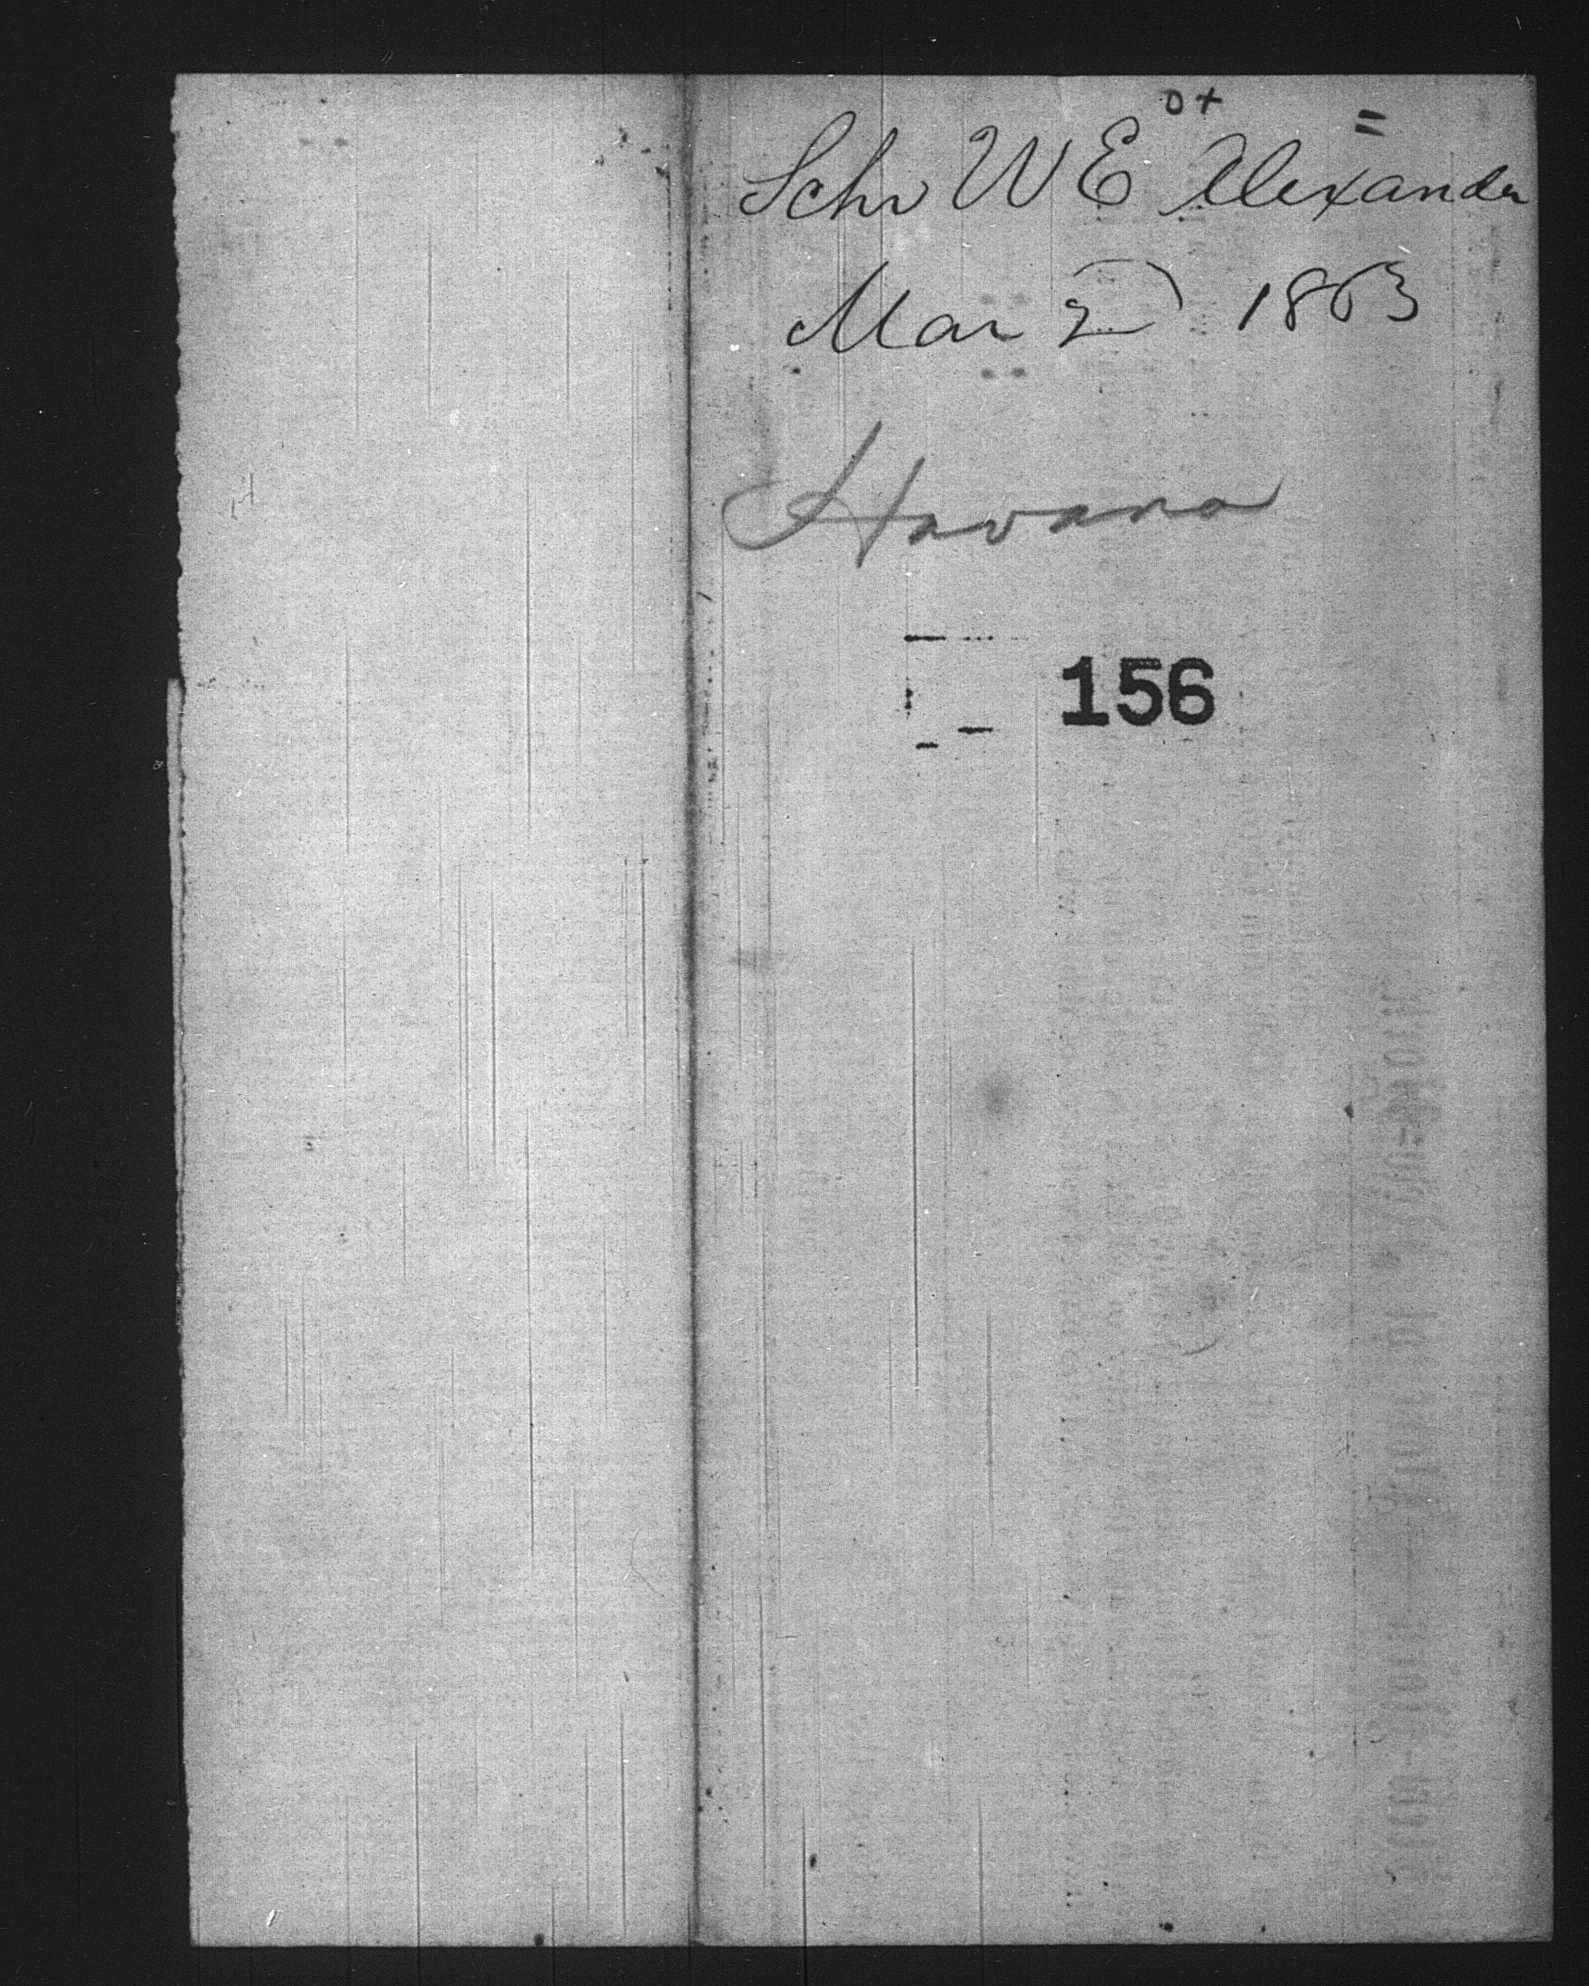 O+ =
Schr W E Alexander
Mar 2 1863
Havana
156